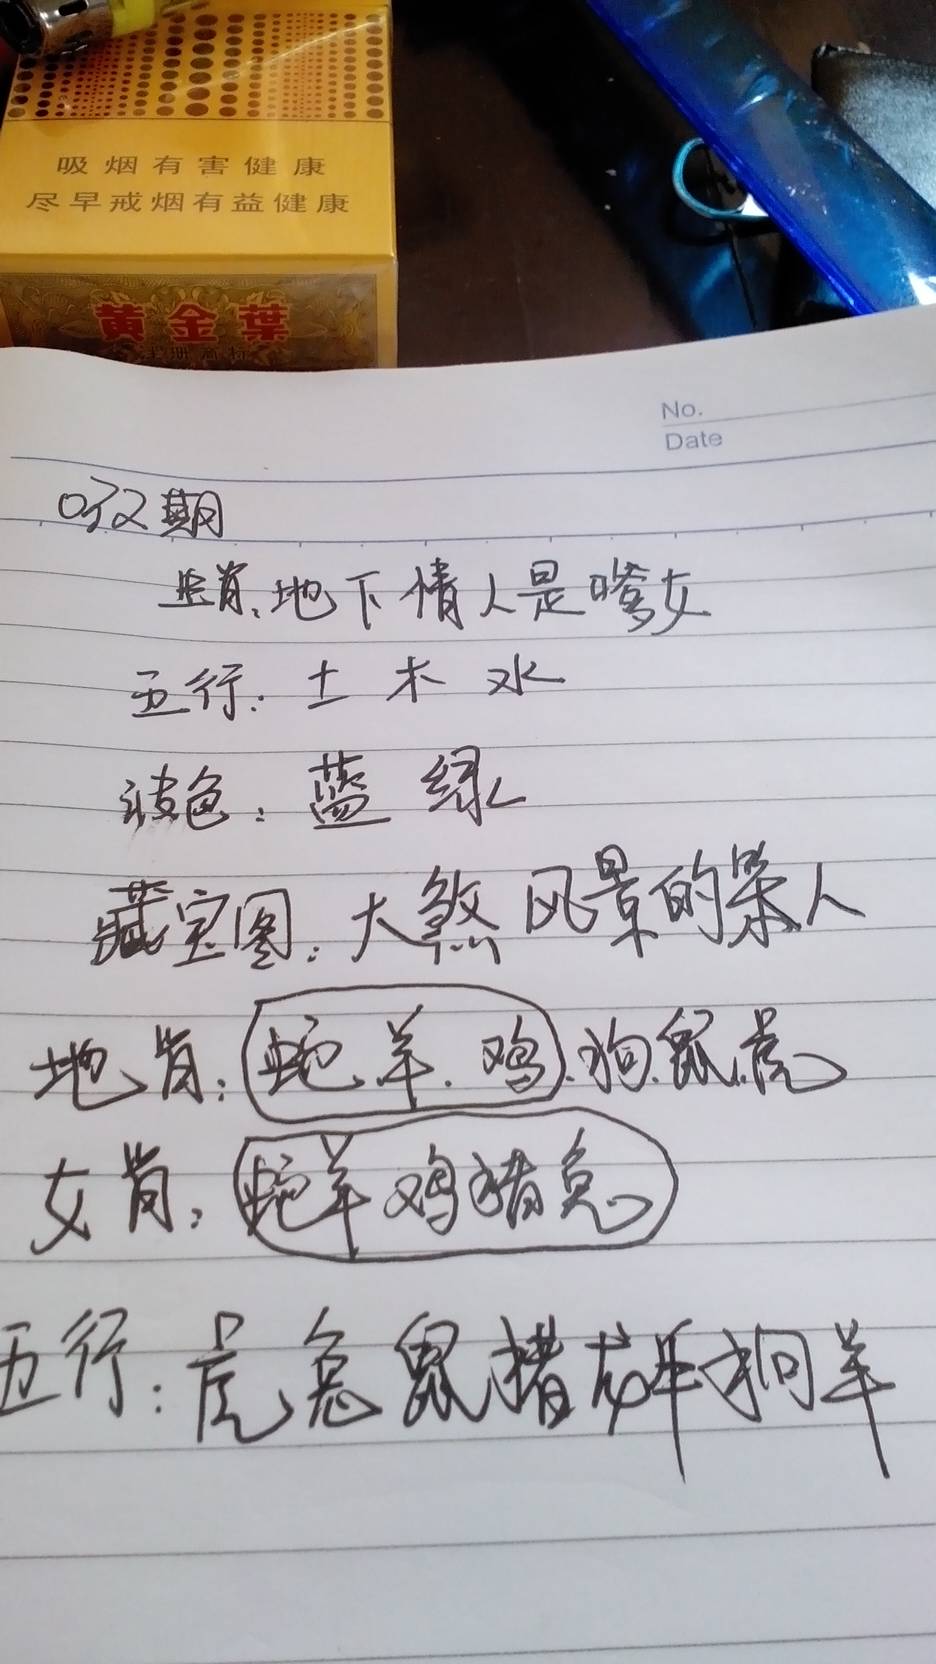 吸烟有害健康
尽早戒烟有益健康
黄金葉
No.
Date
期
生肖:地下情人是嗲女
五行:土 木 水
波色:蓝 绿
藏宝图:大煞风景的杀人
地肖:蛇羊.鸡.狗.鼠.虎
女肖:蛇羊鸡猪兔
五行:虎兔鼠猪龙牛狗羊